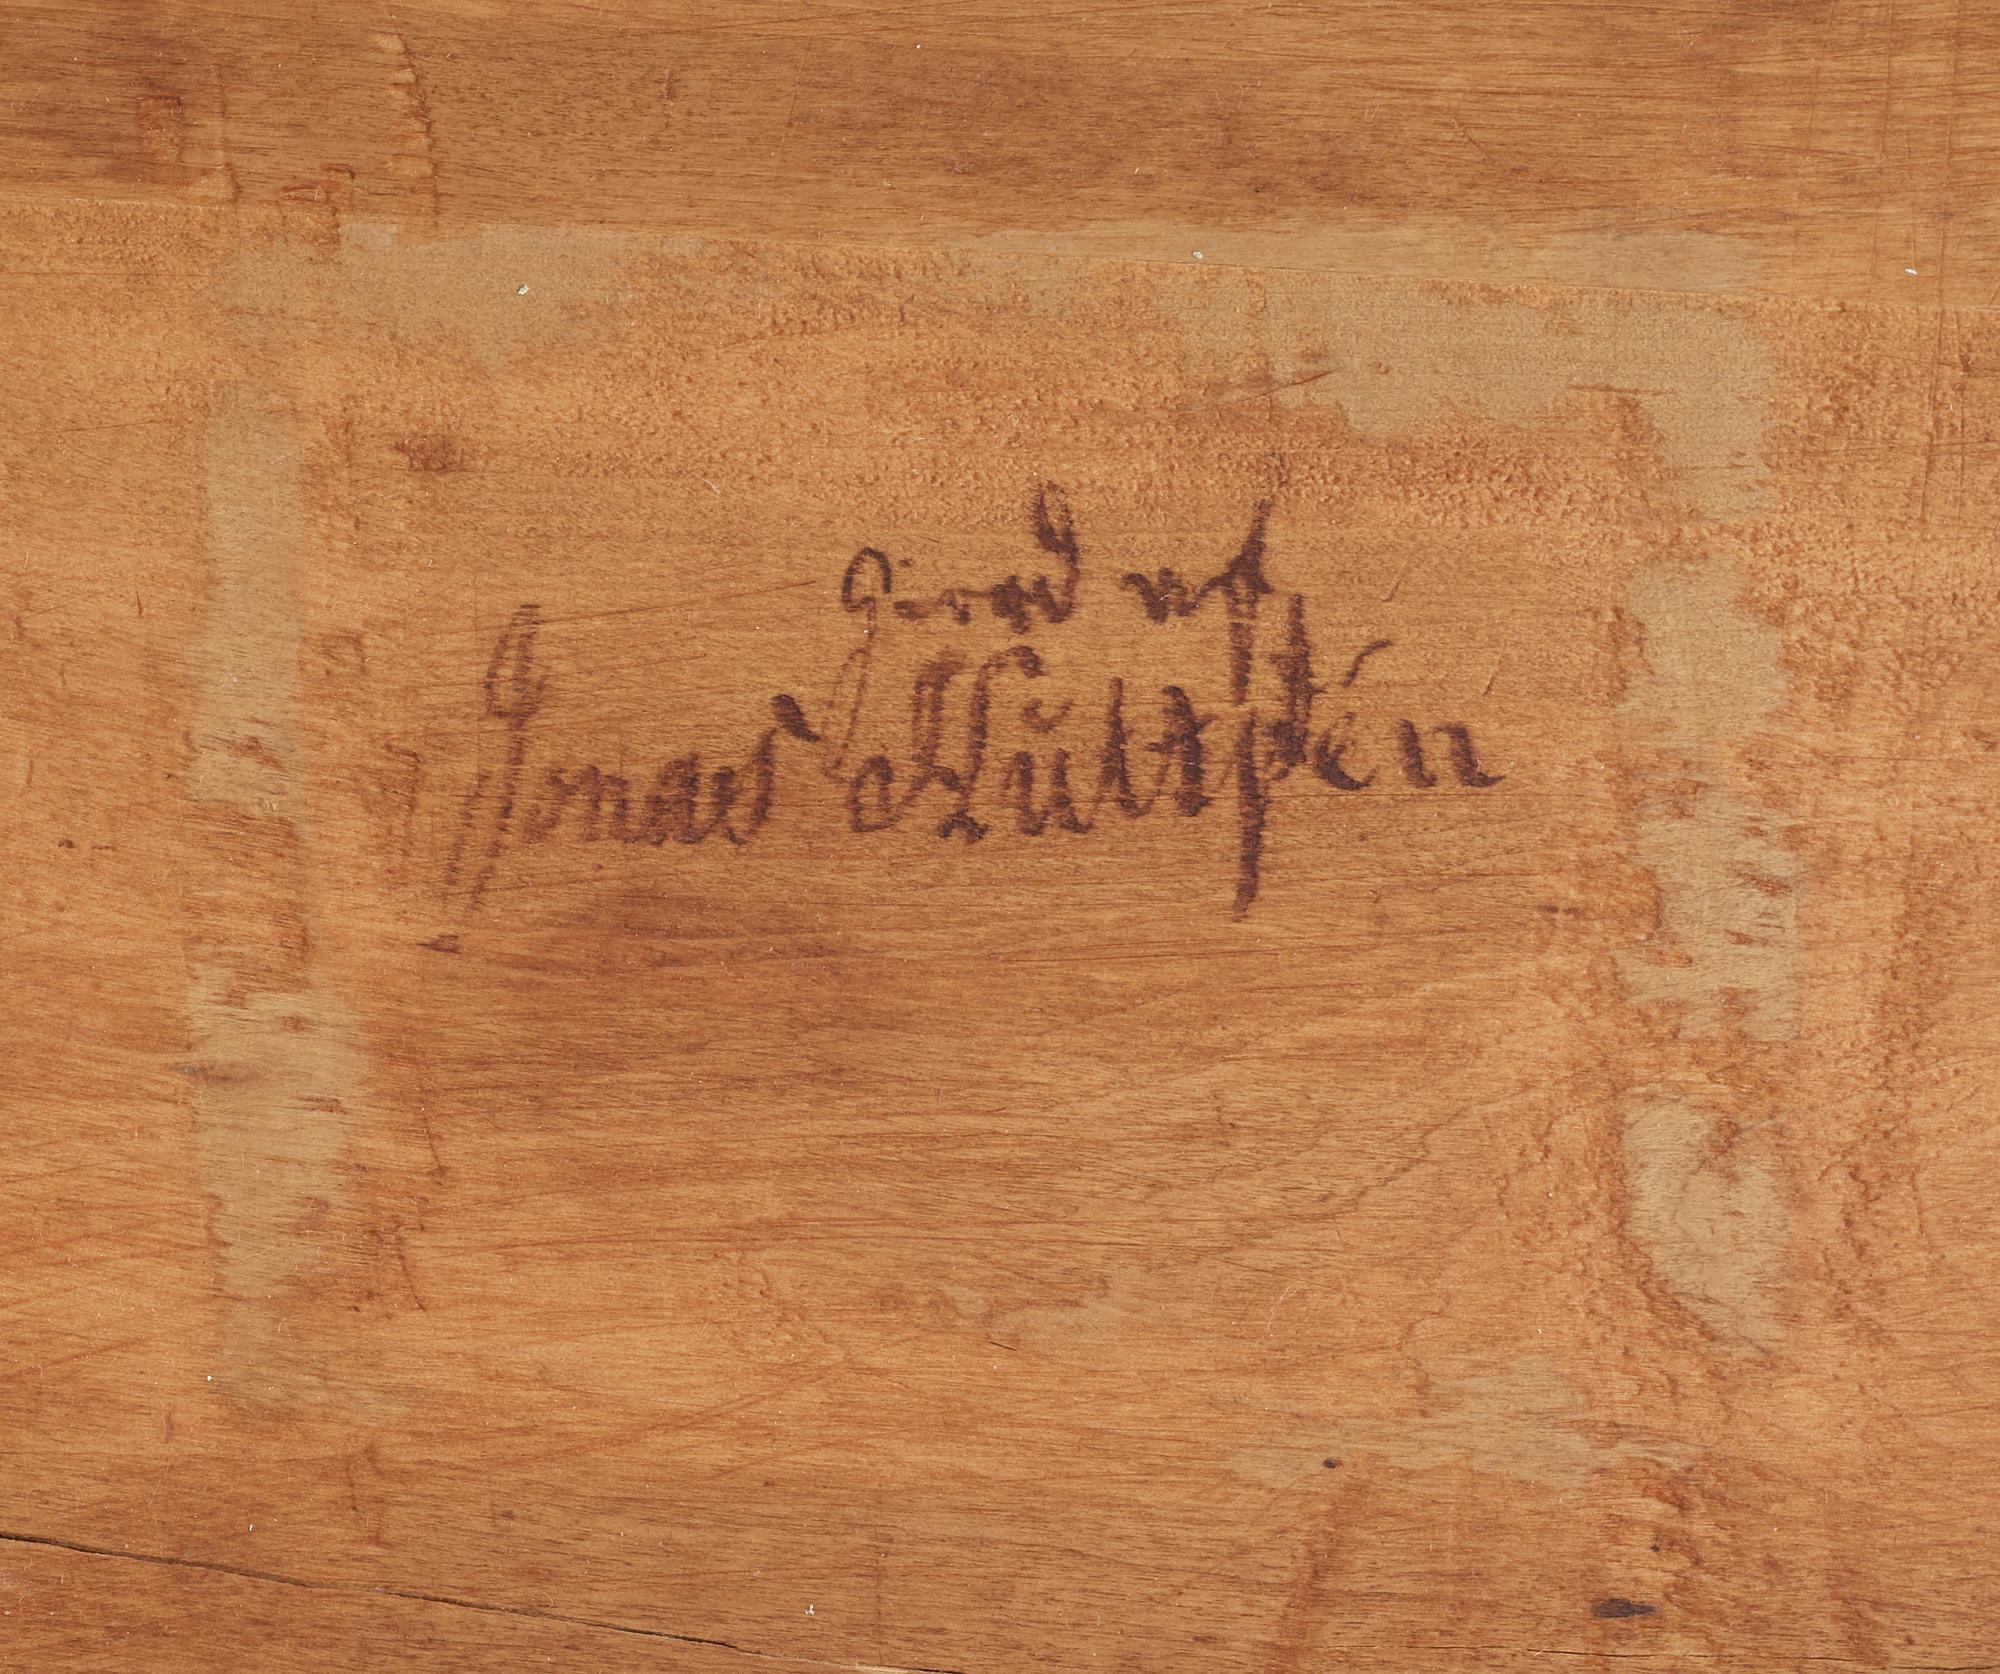 Giord af
Jonas Hultstén